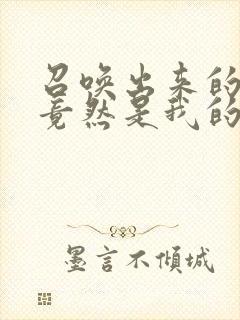 召唤出来的
竟然是我的
墨言不倾城